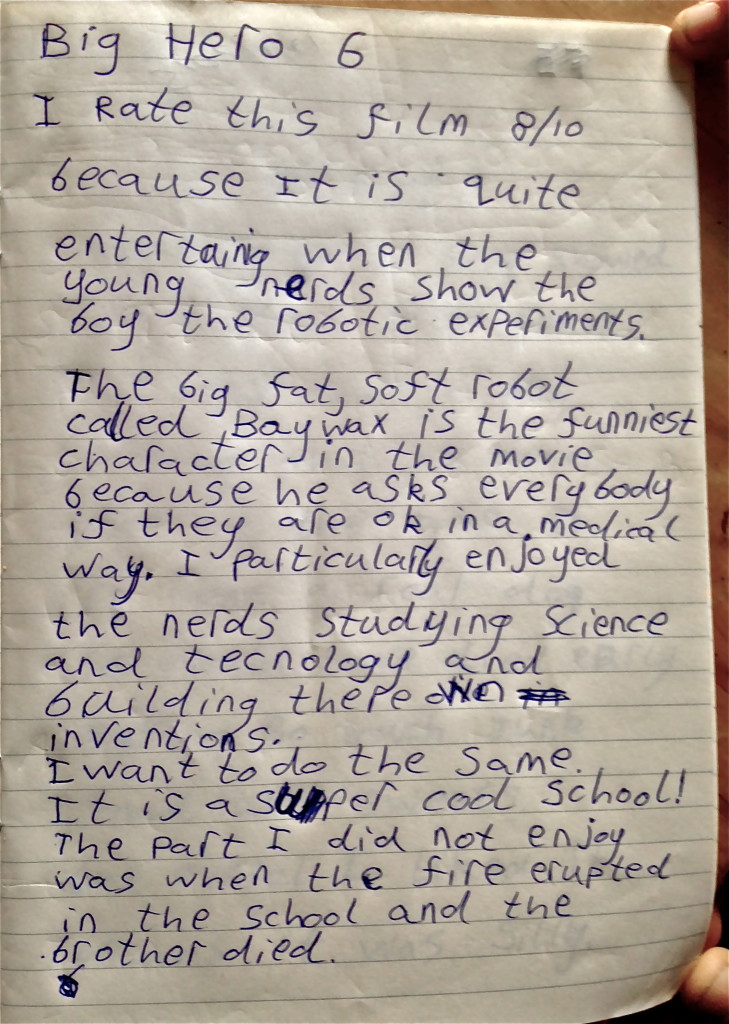 Big Hero 6
I Rate this film 8/10
because It is quite
entertaing when the
young nerds show the
boy the robotic experiments.
The big fat, soft robot
called Baywax is the funniest
character in the movie
because he asks everybody
if they are ok in a medical
way. I particularly enjoyed
the nerds studying science
and tecnology and
building there own
inventions.
I want to do the same.
It is a super cool school!
The part I did not enjoy
was when the fire erupted
in the school and the
brother died.